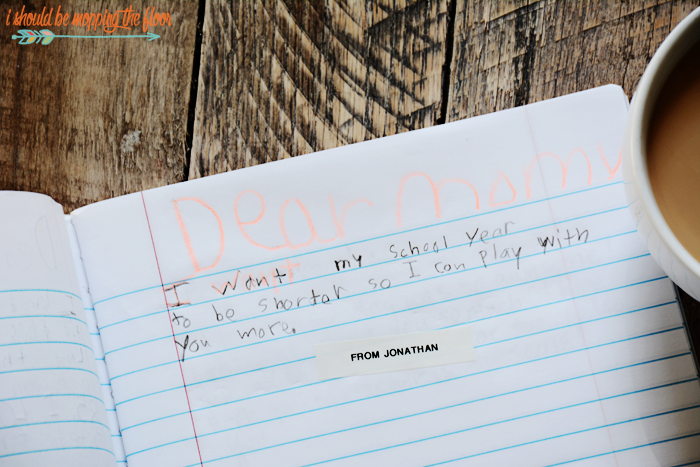 i should be mopping the floor
Dear Mommy
I want my school year
to be shortar so I can play with
you more.
FROM JONATHAN